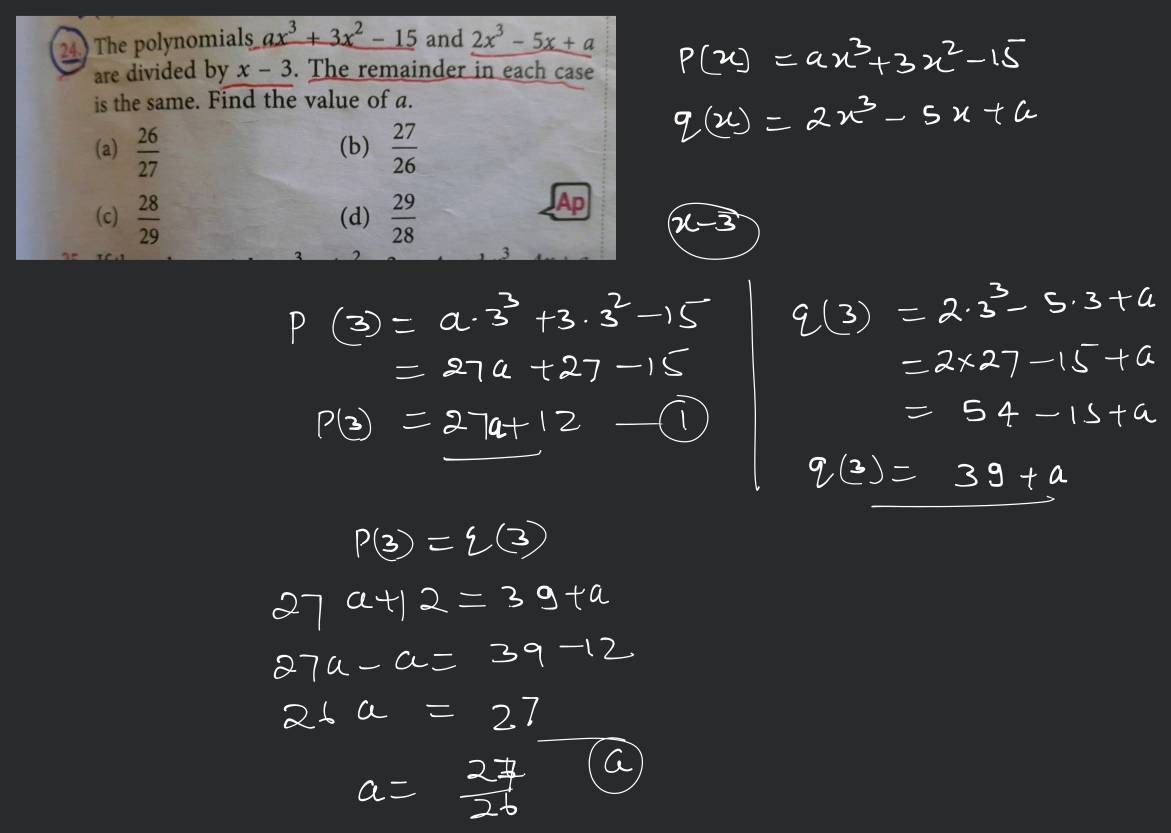 24. The polynomials ax³ + 3x² - 15 and 2x³ - 5x + a
are divided by x - 3. The remainder in each case
is the same. Find the value of a.
(a) 26/27 (b) 27/26
(c) 28/29 (d) 29/28
Ap
P(x) = ax³+3x²-15
q(x) = 2x³ - 5x + a
x-3
P(3) = a.3³ +3.3² -15
= 27a +27 -15
P(3) = 27a+12 — 1
q(3) = 2.3³ - 5.3+a
= 2×27 -15 +a
= 54 -15+a
q(3) = 39 +a
P(3) = q(3)
27a+12 = 39+a
27a - a = 39 -12
26a = 27
a = 27/26
a